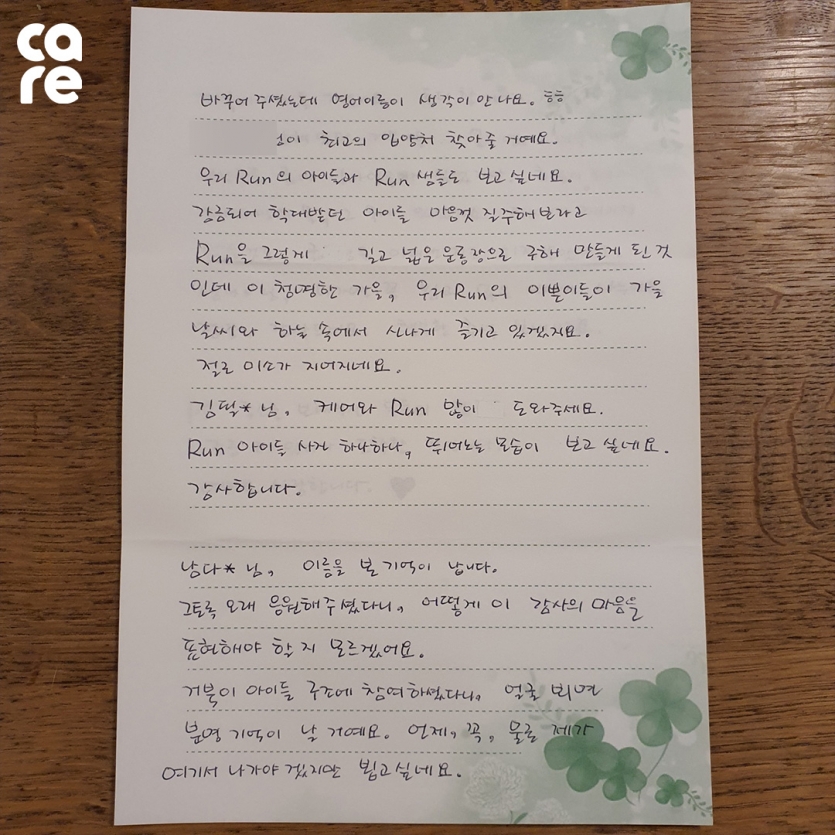 care
바꾸어 주셨는데 영어이름이 생각이 안나요. ㅎㅎ
이 최고의 입양처 찾아줄 거예요.
우리 Run의 아이들과 Run 샘들도 보고싶네요.
감금되어 학대받던 아이들 마음껏 질주해보라고
Run을 그렇게 길고 넓은 운동장으로 구해 만들게 된 것
인데 이 청명한 가을, 우리 Run의 이쁜이들이 가을
날씨와 하늘 속에서 신나게 즐기고 있겠지요.
절로 미소가 지어지네요.
김덕*님, 케어와 Run 많이 도와주세요.
Run 아이들 사진 하나하나, 뛰어노는 모습이 보고싶네요.
감사합니다.
남다*님, 이름을 본 기억이 납니다.
그토록 오래 응원해주셨다니, 어떻게 이 감사의 마음을
표현해야 할 지 모르겠어요.
거북이 아이들 구조에 참여하셨다니, 얼굴 뵈면
분명 기억이 날 거예요. 언제, 꼭, 물론 제가
여기서 나가야 겠지만 뵙고싶네요.